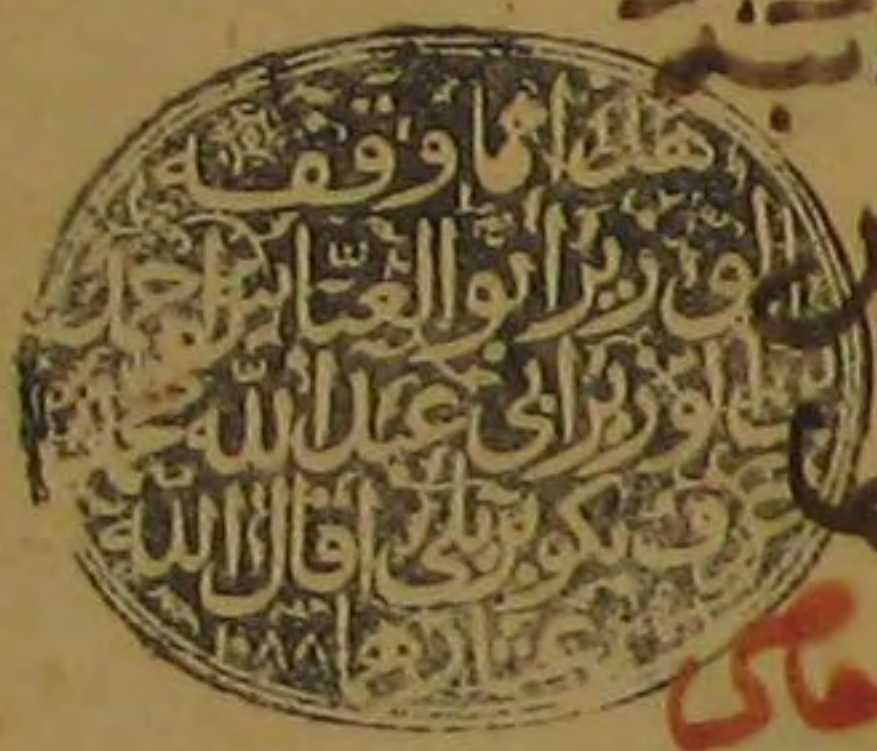 هذا مما وقفه
الوزير ابو العبّاس احمد
بن الوزير ابي عبد الله محمد
عرف بكوبريلي اقال الله
عثارهما ١٠٨٨